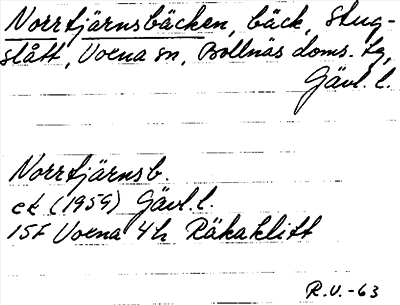 Norrtjärnsbäcken, bäck, Stug-
slått, Voxna sn, Bollnäs doms. tg,
Gävl. l.
Norrtjärnsb.
ek (1959) Gävl. l.
15F Voxna 4h Räkaklitt
R.V.-63